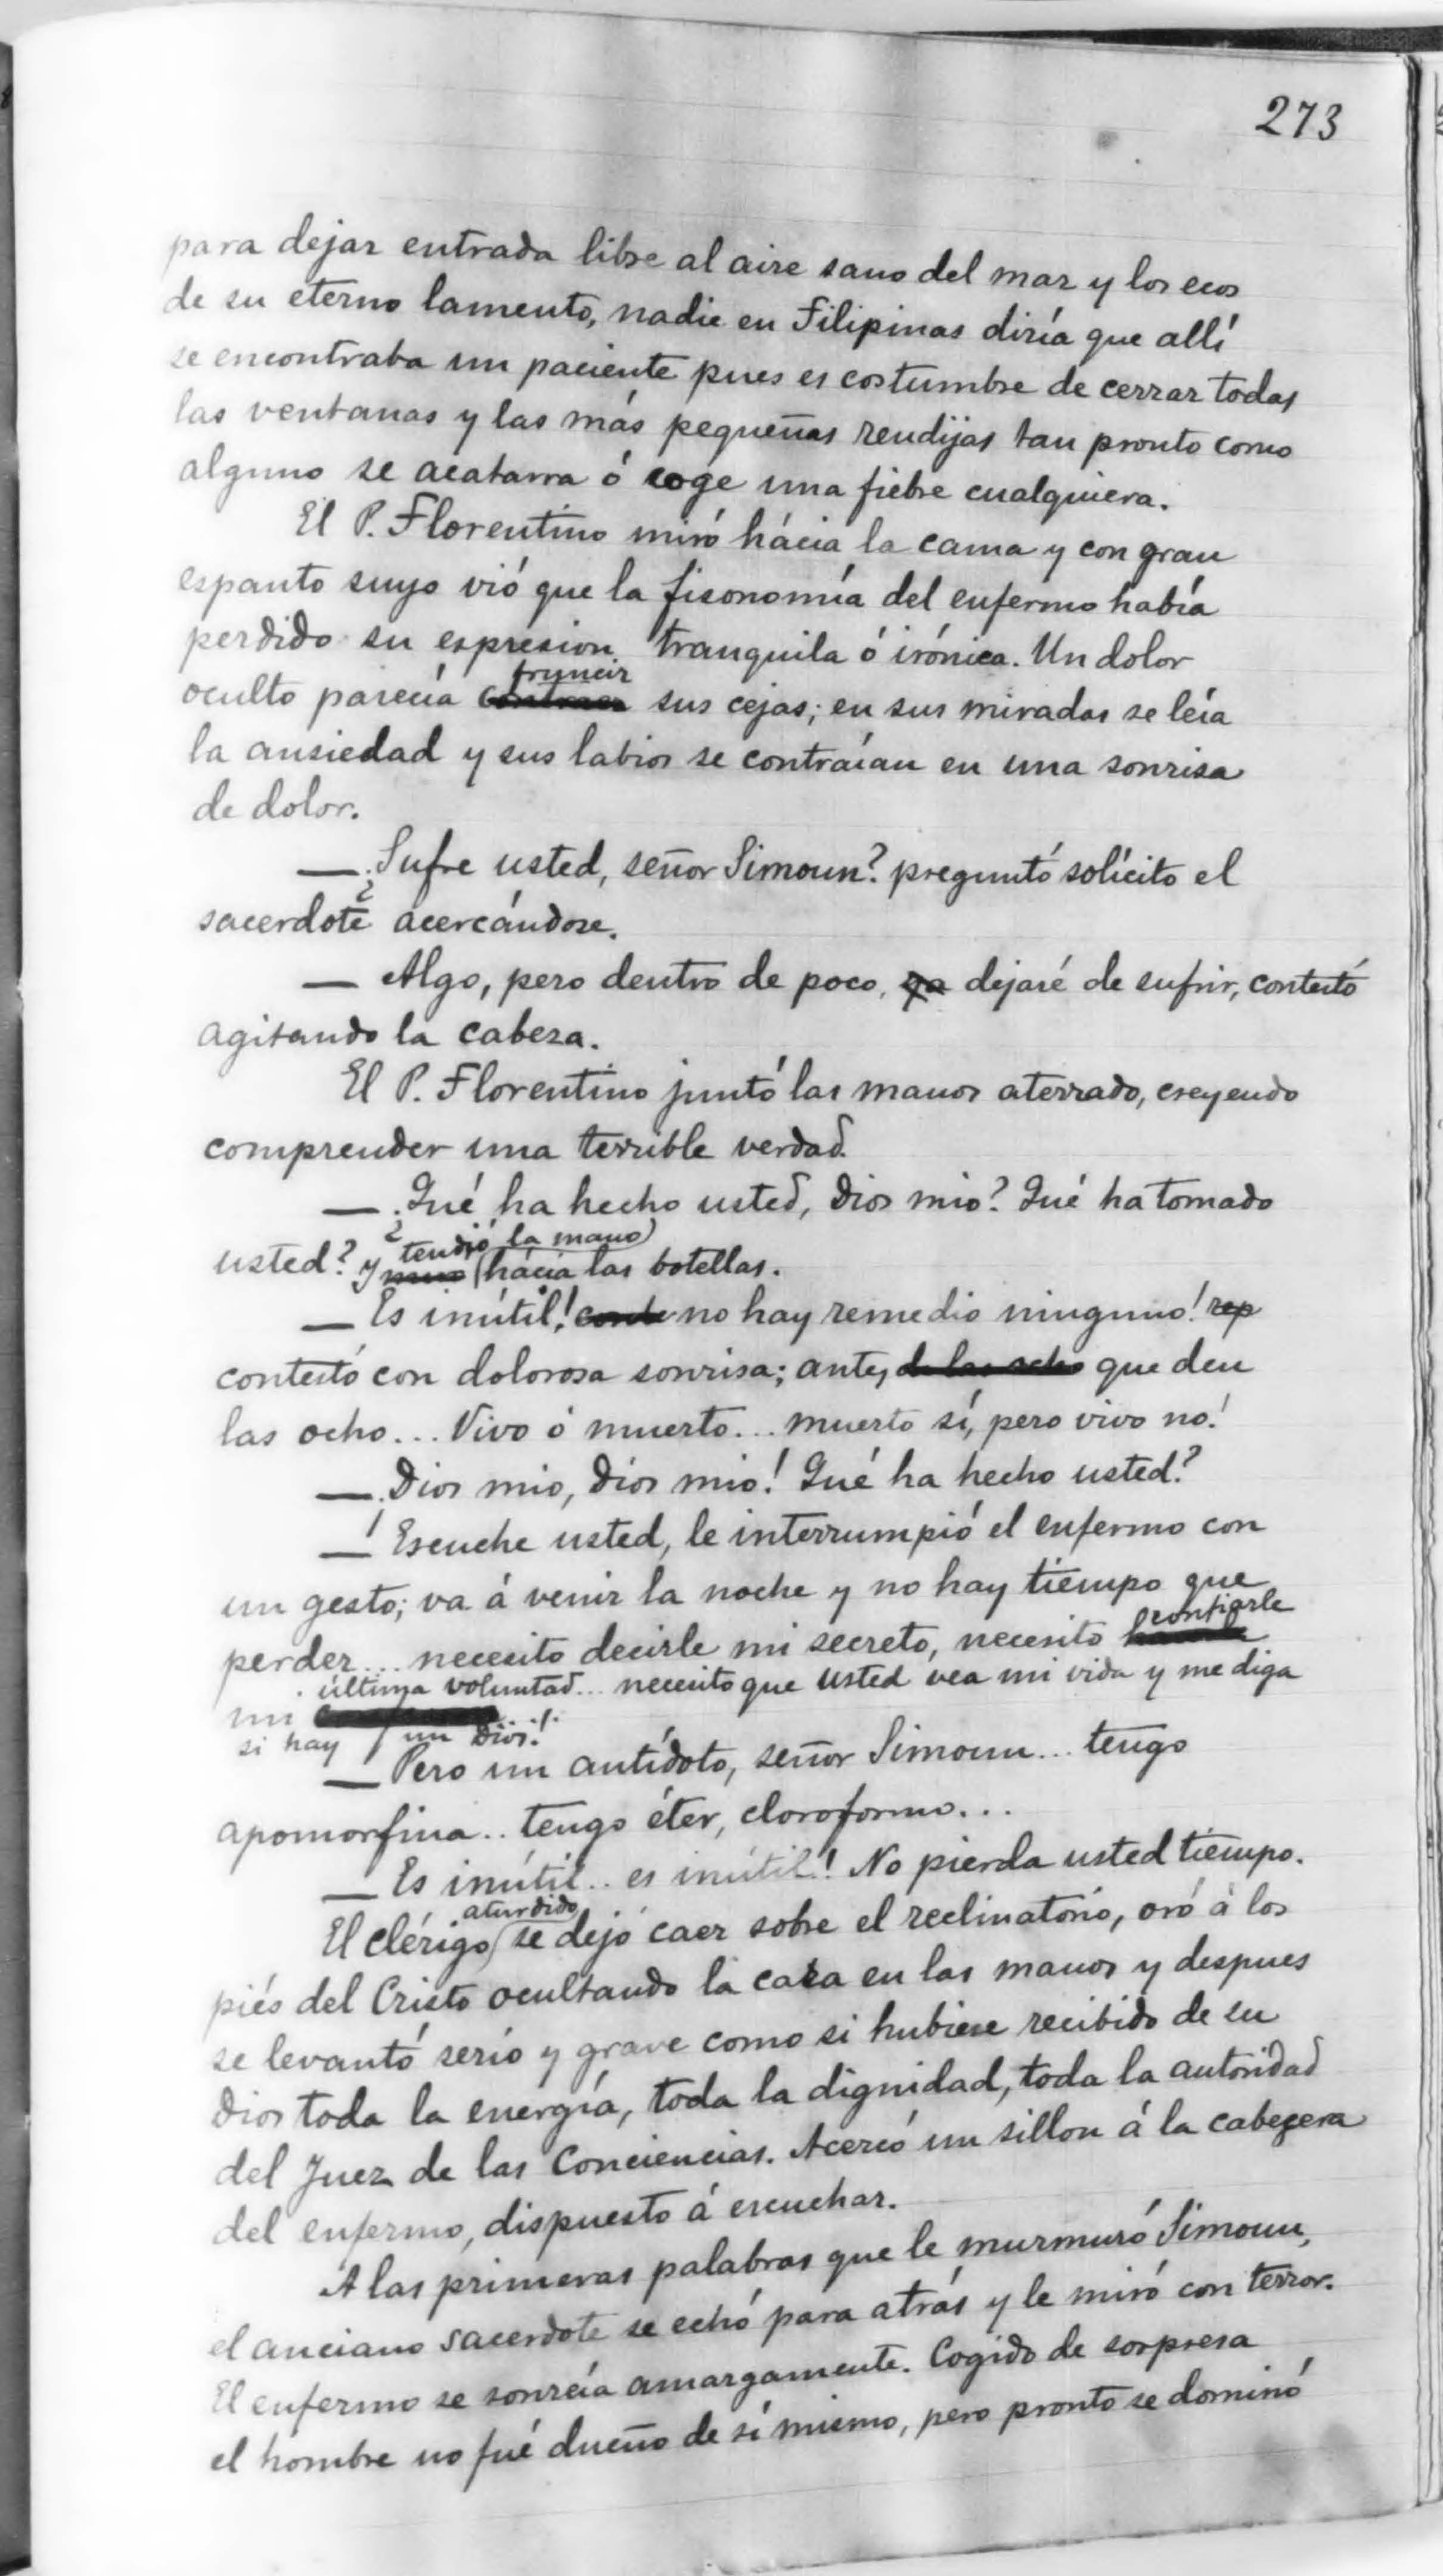 273
para dejar entrada libre al aire sano del mar y los ecos
de su eterno lamento, nadie en Filipinas diría que allí
se encontraba un paciente pues es costumbre de cerrar todas
las ventanas y las más pequeñas rendijas tan pronto como
alguno se acatarra ó coge una fiebre cualquiera.
El P. Florentino miró hácia la cama y con gran
espanto suyo vió que la fisonomía del enfermo había
perdido su expresion tranquila ó irónica. Un dolor
fruncir
oculto parecía contraer sus cejas; en sus miradas se leía
la ansiedad y sus labios se contraían en una sonrisa
de dolor.
— ¿Sufre usted, señor Simoun? preguntó solícito el
sacerdote acercándose.
— Algo, pero dentro de poco, ya dejaré de sufrir, contestó
agitando la cabeza.
El P. Florentino juntó las manos aterrado, creyendo
comprender una terrible verdad.
— ¿Qué ha hecho usted, Dios mio? Qué ha tomado
tendió la mano
usted? y miró hácia las botellas.
— Es inútil! no hay remedio ninguno! rep
contestó con dolorosa sonrisa; antes de las ocho que den
las ocho... Vivo ó muerto... muerto sí, pero vivo no!
— ¡Dios mio, Dios mio! Qué ha hecho usted?
— Escuche usted, le interrumpió el enfermo con
un gesto; va á venir la noche y no hay tiempo que
confiarle
perder... necesito decirle mi secreto, necesito
última voluntad... necesito que usted vea mi vida y me diga
mi
si hay un Dios!
— Pero un antídoto, señor Simoun... tengo
apomorfina.. tengo éter, cloroformo...
— Es inútil.. es inútil! No pierda usted tiempo.
aturdido
El clérigo se dejó caer sobre el reclinatorio, oró á los
piés del Cristo ocultando la cara en las manos y despues
se levantó serio y grave como si hubiese recibido de su
Dios toda la energía, toda la dignidad, toda la autoridad
del Juez de las Conciencias. Acercó un sillon á la cabecera
del enfermo, dispuesto á escuchar.
A las primeras palabras que le murmuró Simoun,
el anciano sacerdote se echó para atrás y le miró con terror.
El enfermo se sonreía amargamente. Cogido de sorpresa
el hombre no fué dueño de sí mismo, pero pronto se dominó